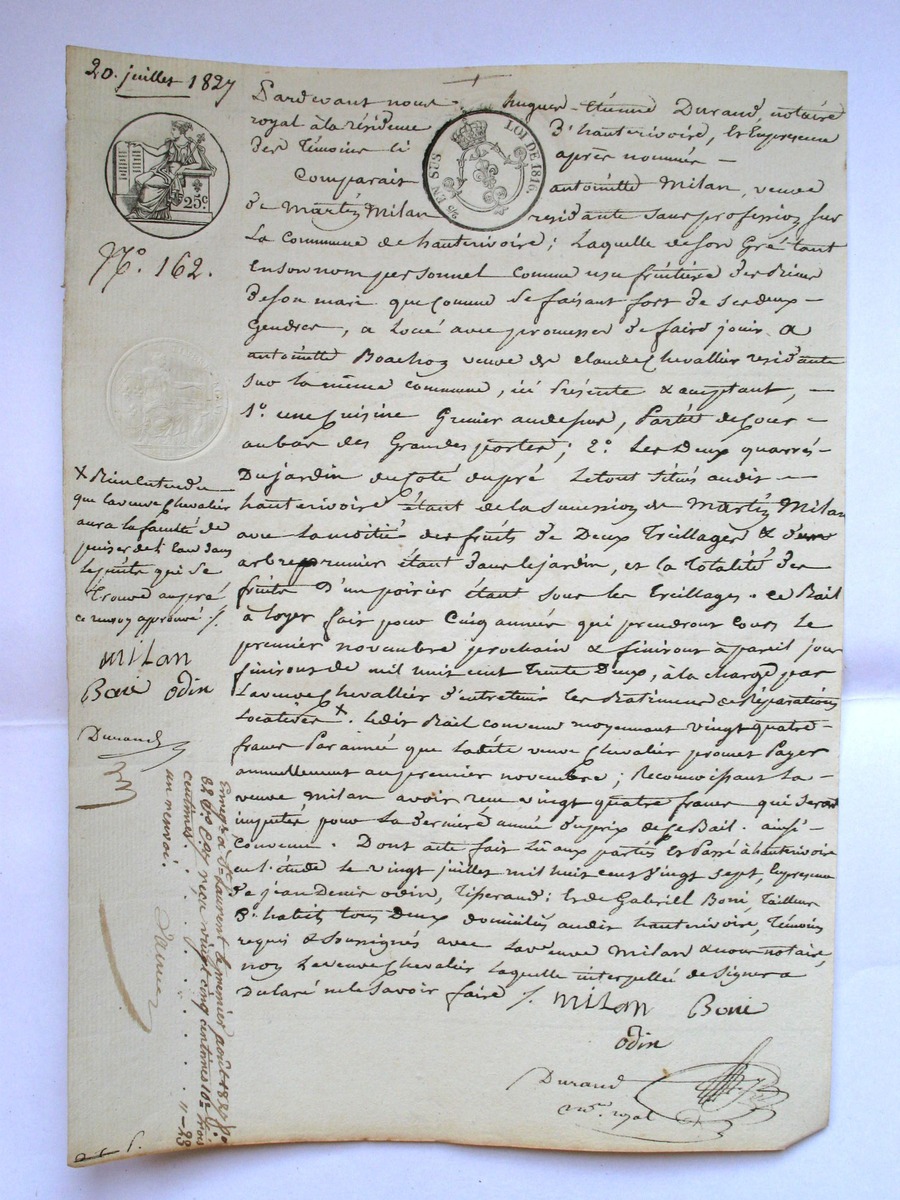 20. juillet 1827
Pardevant nous hugues-étienne Durand, notaire
royal à la résidence d'hauterivoire, et En presence
des témoins ci après nommés —
Comparait antoinette Milan, veuve
de Martin Milan residante sans profession sur
La Commune de hauterivoire; Laquelle de son Gré tant
en son nom personnel comme usufruitiere des Biens
de son mari que comme se faisant fort de ses deux —
Gendres, a Loué avec promesse de faire jouir à
antoinette Boachon veuve de claude Chevallier residante
sur la même commune, ici Présente & acceptant, —
1º. une Cuisine Grenier au dessus, Partie de Cour —
au bas des Grandes portes; 2º. Les Deux quarrés
Du jardin du coté du pré Le tout situés audit —
hauterivoire étant de la succession de Martin Milan
avec La moitié des fruits de Deux Treillages &
arbre prunier étant dans le jardin, et la totalité des
fruits D'un poirier étant sous les treillages. ce Bail
à loyer fait pour Cinq années qui prendront cours Le
premier novembre prochain & finiront à pareil jour
finirons de mil huit cent trente Deux, à la charge par
La veuve Chevallier d'entretenir les Batiments de Réparations
Locatives X. Ledit Bail convenu moyennant vingt quatre
francs Par année que Ladite veuve Chevalier promet Payer
annuellement au premier novembre; Reconnoissant La —
veuve Milan avoir reçu vingt quatre francs qui seront
imputés pour La derniere année du prix de ce Bail. ainsi —
Convenu. Dont acte fait Lu aux parties Et Passé à hauterivoire
en l'étude Le vingt juillet mil huit cent vingt sept, En presence
de jean Denis odin, Tisserand; & de Gabriel Boni, Tailleur
d'habits tous Deux domiciliés audit hauterivoire, Témoins
requis & soussignés avec La veuve Milan & nous notaire,
non La veuve Chevalier laquelle interpellée de signer a
Declaré ne le savoir faire /.
Milan Boni
odin
Durand
nre. royal
25 EN SUS
LOI DE 1816.
25c.
Nº. 162.
X Bien entendu
que la veuve Chevalier
aura la faculté de
puiser de l'eau dans
le puits qui se
trouve au pré
ce renvoi approuvé /.
Milan
Boni odin
Durand
Enregé. a St. Laurent le premier août 1827 fo.
82 vo. Cas. 7 reçu vingt cinq centimes 10e. trois
centimes
un renvoi.